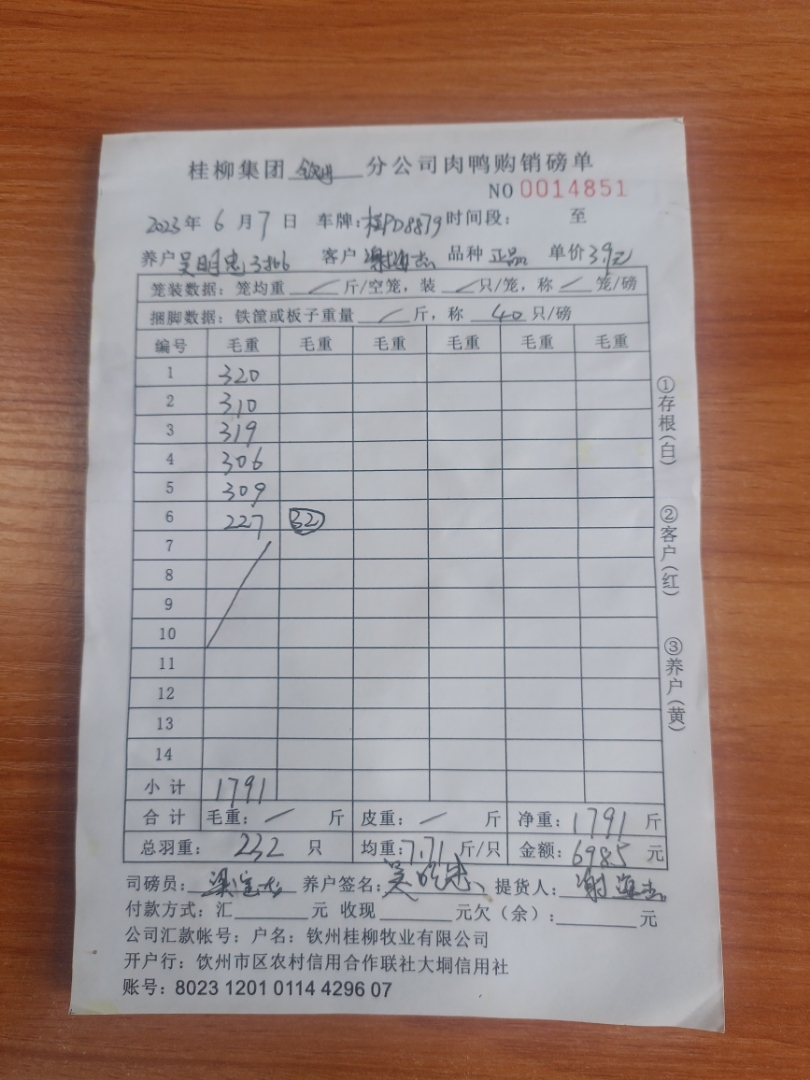 桂柳集团 钦州 分公司肉鸭购销磅单
NO 0014851
2023年 6 月 7 日 车牌:桂PD8879 时间段: 至
养户 吴明忠 客户 谢海杰 品种 正品 单价 3.9元
笼装数据:笼均重 斤/空笼,装 只/笼,称 笼/磅
捆脚数据:铁筐或板子重量 斤,称 40 只/磅
编号 毛重 毛重 毛重 毛重 毛重 毛重
1 320
2 310
3 319
4 306
5 309
6 227 32
7
8
9
10
11
12
13
14
小计 1791
合计 毛重: 斤 皮重: 斤 净重:1791 斤
总羽重: 232 只 均重:7.71 斤/只 金额:6985 元
司磅员: 养户签名:吴明忠 提货人:谢海杰
付款方式:汇 元 收现 元欠(余): 元
公司汇款帐号:户名:钦州桂柳牧业有限公司
开户行:钦州市区农村信用合作联社大垌信用社
账号:8023 1201 0114 4296 07
①存根(白)
②客户(红)
③养户(黄)